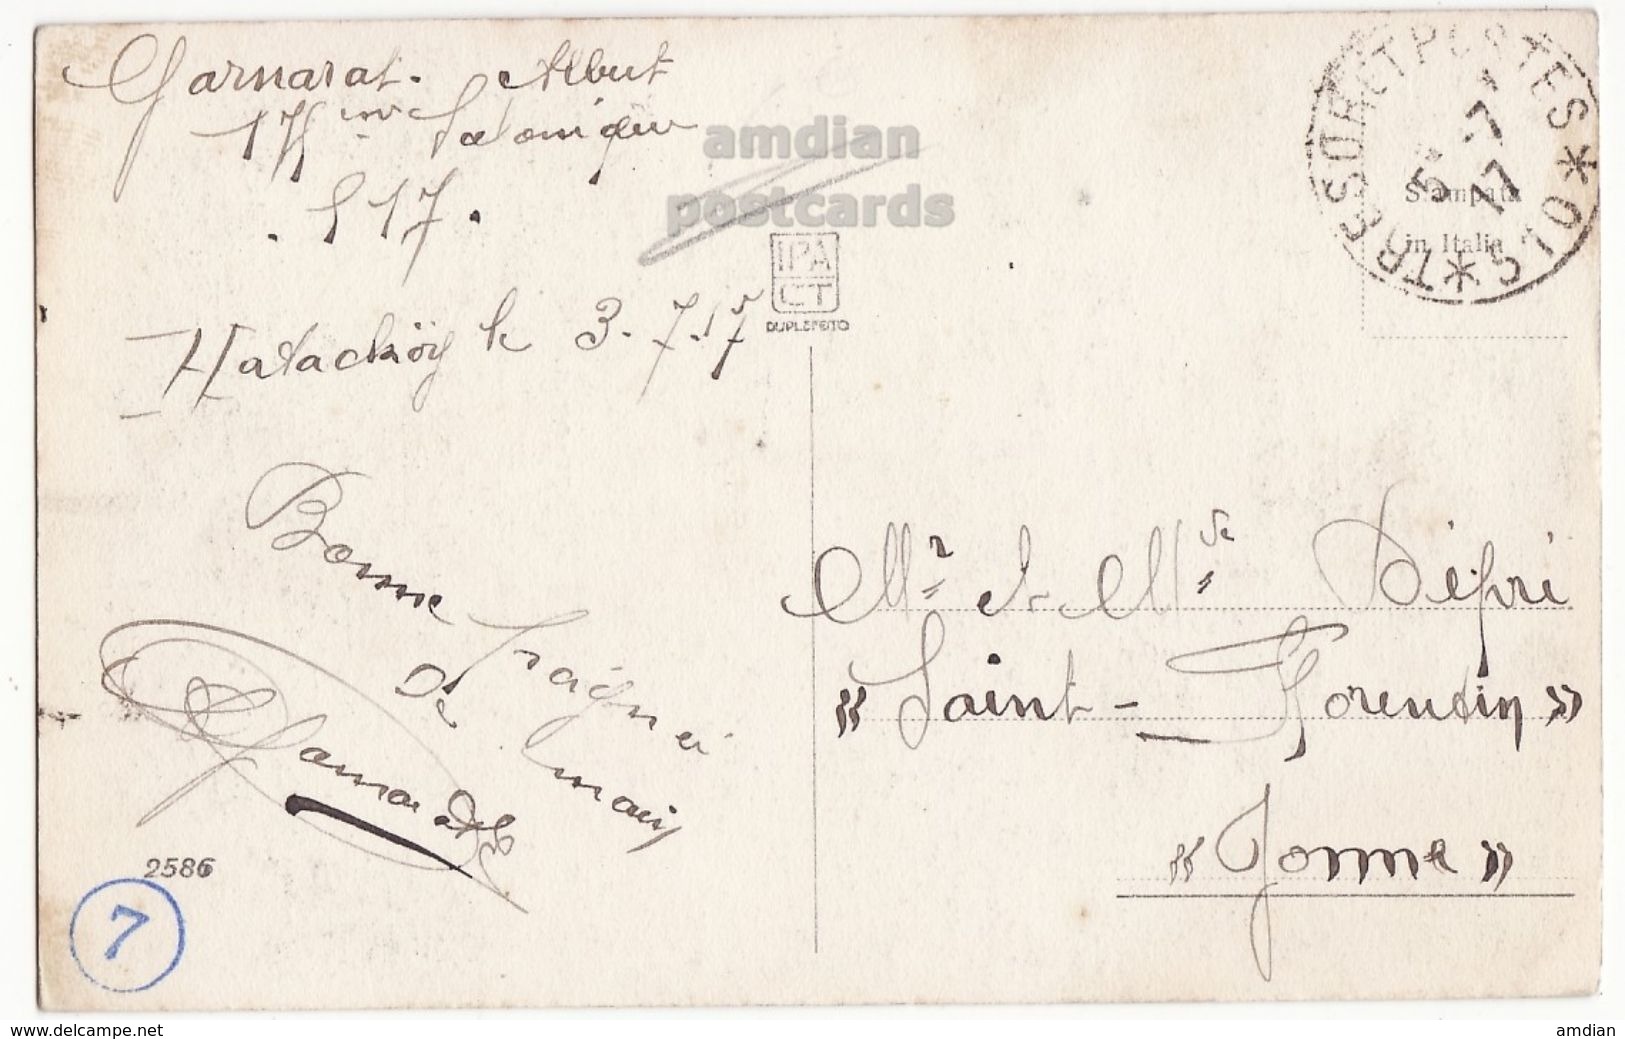 Garnarat. Albert
17 Salonique
. 517 .
Hatacköy le 3.7.17
Bonne Poignée
de
main
Garnarat
2586
7
amdian
postcards
IPA
CT
DUPLEFOTO
TRESOR ET POSTES * 510 *
5 -7
17
Stampata
in Italia
Mr et Mde Dépré
« Saint-Florentin »
« Yonne »
www.delcampe.net
amdian